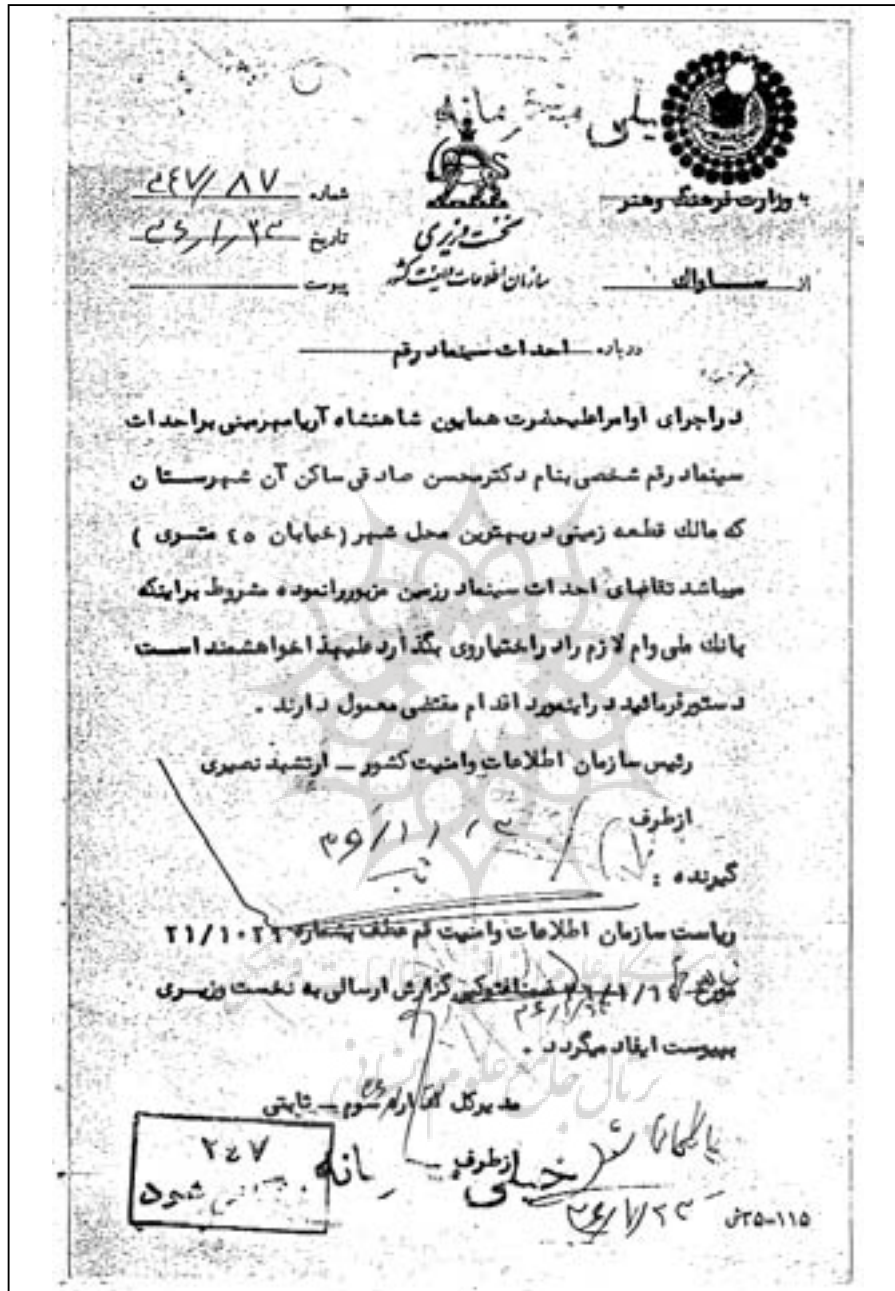 خیلی محرمانه
به وزارت فرهنگ وهنر
از ساواك
نخست وزیری
سازمان اطلاعات وامنیت کشور
شماره ۲۴۷/۸۷
تاریخ
پیوست
درباره احداث سینمادرقم
دراجرای اوامراعلیحضرت همایون شاهنشاه آریامهرمبنی براحداث
سینمادرقم شخصی بنام دکترمحسن صادقی ساکن آن شهرستان
که مالك قطعه زمینی دربهترین محل شهر (خیابان ٤٥ متری )
میباشد تقاضای احداث سینمادرزمین مزبوررانموده مشروط براینکه
بانك ملی وام لازم رادراختیاروی بگذارد علیهذا خواهشمند است
دستورفرمائید دراینمورد اقدام مقتضی معمول دارند .
رئیس سازمان اطلاعات وامنیت کشور ــ ارتشبد نصیری
ازطرف
گیرنده :
ریاست سازمان اطلاعات وامنیت قم عطف بشماره
گزارش ارسالی به نخست وزیری
بپیوست ایفاد میگردد .
مدیرکل اداره سوم ــ ثابتی
ازطرف
خیلی محرمانه
۲٤۷
شود
۱۱۵-۲۵ش